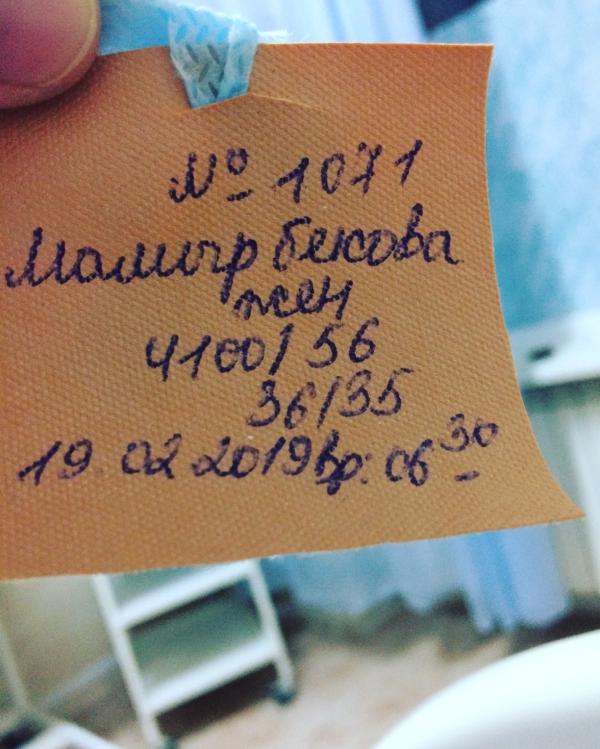 № 1071
Мамырбекова
жен
4100/56
36/35
19.02.2019 вр: 06 30